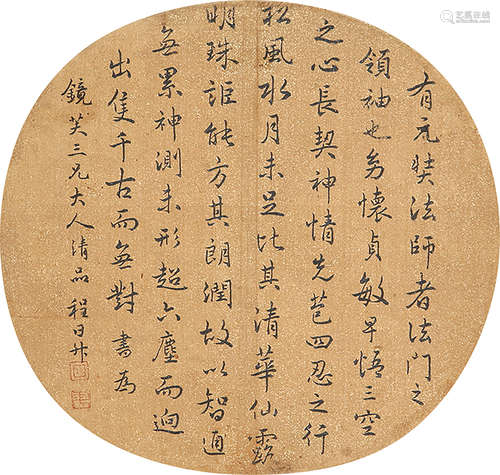 有元奘法師者法門之
領袖也幼懷貞敏早悟三空
之心長契神情先苞四忍之行
松風水月未足比其清華仙露
明珠詎能方其朗潤故以智通
無累神測未形超六塵而迥
出隻千古而無對 書為
鏡芙三兄大人清品 程日升